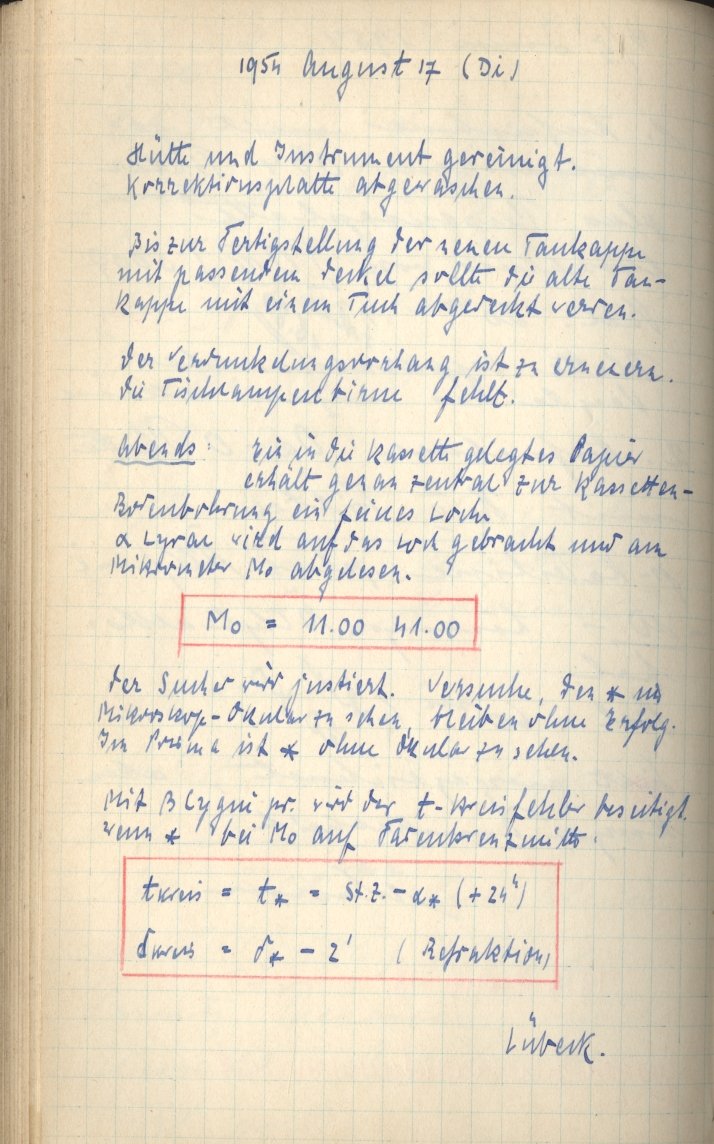 1954 August 17 (Di)
Hütte und Instrument gereinigt.
Korrektionsplatte abgewaschen.
Bis zur Fertigstellung der neuen Taukappe
mit passendem Deckel sollte die alte Tau-
kappe mit einem Tuch abgedeckt werden.
Der Verdunkelungsvorhang ist zu erneuern.
Die Tischlampenbirne fehlt.
abends: Ein in die Kassette gelegtes Papier
erhält genau zentral zur Kassetten-
Bodenbohrung ein feines Loch
α Lyrae wird auf das Loch gebracht und am
Mikrometer Mo abgelesen.
Mo = 11.00 41.00
Der Sucher wird justiert. Versuche, den * im
Mikroskop-Okular zu sehen, bleiben ohne Erfolg.
Im Prisma ist * ohne Okular zu sehen.
Mit β Cygni pr. wird der t-Kreisfehler beseitigt.
wenn * bei Mo auf Fadenkreuzmitte.
t Kreis = t* = St.Z. - α* (+24ʰ)
δ Kreis = δ* - 2' (Refraktion)
Lübeck.